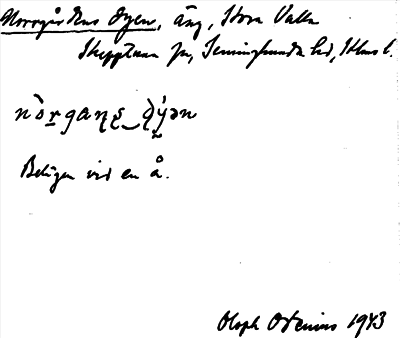 Norrgårdens dyen, äng, Stora Valla
Skepptuna sn, Seminghundra hd, Sthms l.
nòrgaṇṣ‿dýən
Belägen vid en å.
Oloph Odenius 1943